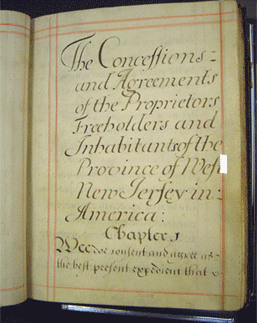 The Concessions=
and Agreements
of the Proprietors
Freeholders and
Inhabitants of the
Province of West
New Jersey in:
America:
Chapter J
Wee doe consent and agree as
the best present expedient that